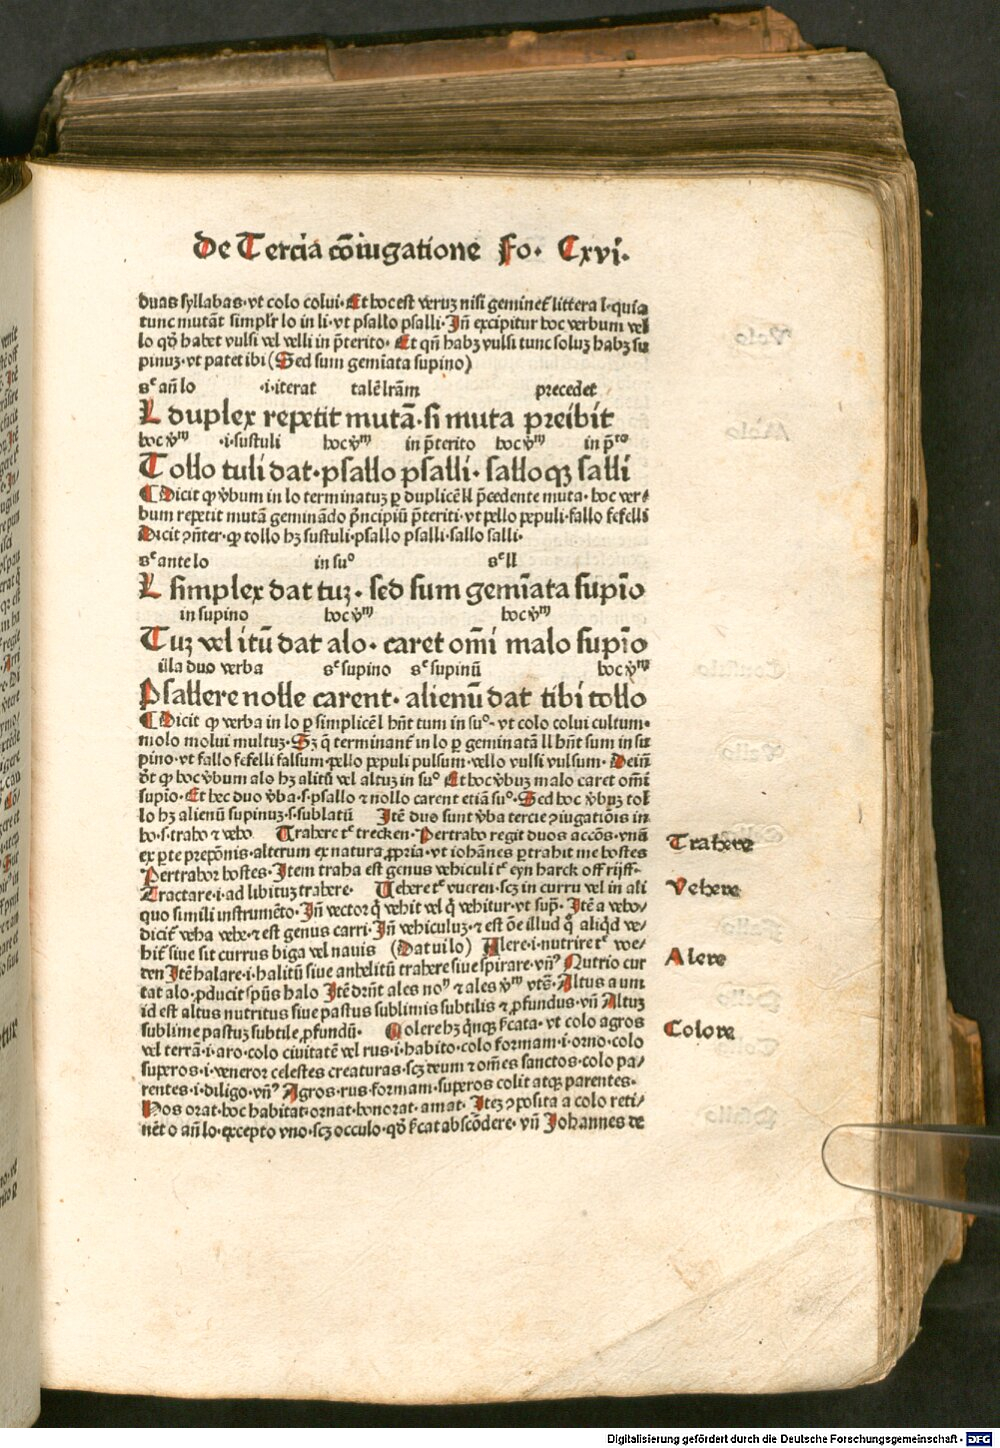 De Tercia cōiugatione Fo. Cxvi.
duas syllabas·vt colo colui·Et hoc est veruȝ nisi geminet̄ littera l·quia
tunc mutāt simplr̄ lo in li·vt psallo psalli·Iñ excipitur hoc verbum vel
lo qd̄ habet vulsi vel velli in p̄terito· Et qñ habȝ vulsi tunc soluȝ habȝ su
pinuȝ·vt patet ibi (Sed sum gemīata supino)
sᶜ añ lo ·i·iterat talē lrām precedet
L duplex repetit mutā·si muta preibit
hoc v̄ᵐ ·i·sustuli hoc v̄ᵐ in p̄terito hoc v̄ᵐ in p̄ᵗᵒ
Tollo tuli dat·psallo psalli·salloqȝ salli
Dicit ꝙ v̄bum in lo terminatuȝ ꝑ duplicē ll p̄cedente muta·hoc ver⸗
bum repetit mutā geminādo p̄ncipiū p̄teriti·vt pello pepuli·fallo fefelli
Dicit ꝯñter·ꝙ tollo hȝ sustuli·psallo psalli·sallo salli·
sᶜ ante lo in suᵒ sᶜ ll
L simplex dat tuȝ·sed sum gemīata supīo
in supino hoc v̄ᵐ hoc v̄ᵐ
Tuȝ vel itū dat alo·caret om̄i malo supīo
ūla duo verba sᶜ supino sᶜ supinū hoc v̄ᵐ
Psallere nolle carent·alienū dat tibi tollo
Dicit ꝙ verba in lo ꝑ simplicē l hñt tum in suᵒ·vt colo colui cultum·
molo molui multuȝ·Sȝ q̄ terminant̄ in lo ꝑ geminatā ll hñt sum in su
pino·vt fallo fefelli falsum·pello pepuli pulsum·vello vulsi vulsum·Deiñ
dt̄ ꝙ hoc v̄bum alo hȝ alitū vel altuȝ in suᵒ Et hoc v̄buȝ malo caret om̄i
supīo·Et hec duo v̄ba·s·psallo ⁊ nollo carent etiā suᵒ·Sed hoc v̄buȝ tol
lo hȝ alienū supinuȝ·s·sublatū Itē duo sunt v̄ba tercie ꝯiugatiōis in
ho·s·traho ⁊ veho Trahere tᶜ trecken·Pertraho regit duos accōs·vnū
ex ꝑte prepōnis·alterum ex natura ꝓpria·vt iohānes ꝑtrahit me hostes
Pertrahor hostes·Item traha est genus vehiculi tᶜ eyn harck off rijff·
Tractare·i·ad libituȝ trahere· Vehere tᶜ vueren·scȝ in curru vel in ali
quo simili instrumēto·Iñ vector q̄ vehit vel q̄ vehitur·vt supͣ·Itē a veho⸗
dicit̄ veha vehe·⁊ est genus carri·Iñ vehiculuȝ·⁊ est ōe illud qͦ aliqd̄ ve⸗
hit̄ siue sit currus biga vel nauis (Dat ui lo) Alere·i·nutrire tᶜ voe⸗
den Itē halare·i·halitū siue anhelitū trahere siue spirare·vñ? Nutrio cur
tat alo·ꝓducit spūs halo Itē drñt ales noᵐ ⁊ ales v̄ᵐ vtꝭ·Altus a um
id est altus nutritus siue pastus sublimis subtilis ⁊ ꝓfundus·vñ Altuȝ
sublime pastuȝ subtile ꝓfundū· Colere hȝ q̄nqȝ s̄cata·vt colo agros
vel terrā·i·aro·colo ciuitatē vel rus·i·habito·colo formam·i·orno·colo
superos·i·veneror celestes creaturas·scȝ deum ⁊ om̄es sanctos·colo pa⸗
rentes·i·diligo·vñ? Agros·rus·formam·superos colit atqȝ parentes·
Hos orat·hoc habitat·ornat·honorat·amat·Iteȝ ꝯposita a colo reti⸗
nēt o añ lo·excepto vno·scȝ occulo·qd̄ s̄cat abscōdere·vñ Iohannes de
Trahere
Vehere
Alere
Colore
Digitalisierung gefördert durch die Deutsche Forschungsgemeinschaft - DFG